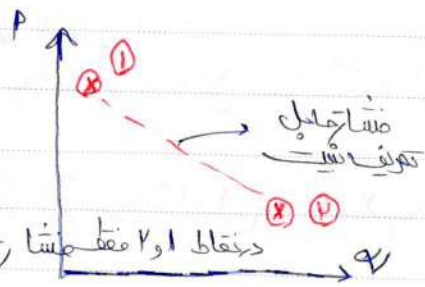 P
۱
فشار قابل
تعریف نیست
۲
در نقاط ۱ و ۲ فقط فشار
v